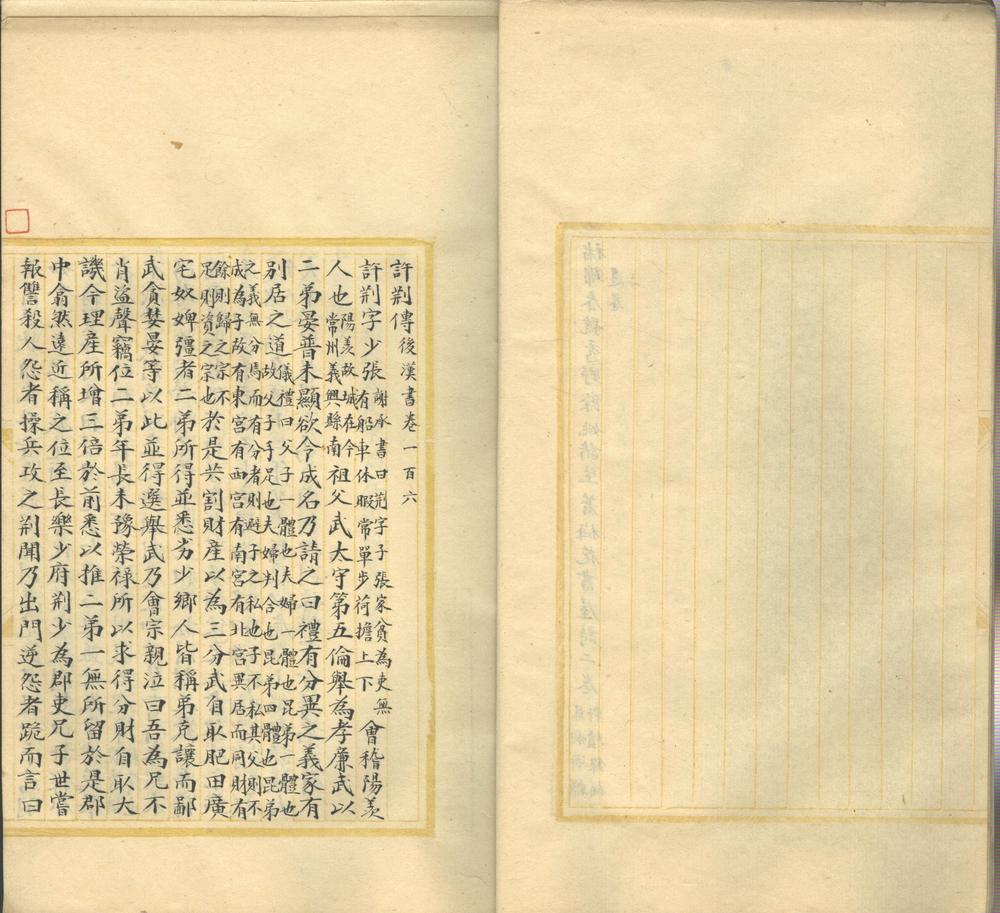 許荆傳後漢書卷一百六
許荆字少張謝承書曰荆字子張家貧為吏無有船車休暇常單步荷擔上下會稽陽羨
人也陽羨故城在今常州義興縣南祖父武太守第五倫舉為孝廉武以
二弟晏普未顯欲令成名乃請之曰禮有分異之義家有
別居之道儀禮曰父子一體也夫婦一體也昆弟一體也故父子手足也夫婦判合也昆弟四體也昆弟
之義無分焉而有分者則避子之私也子不私其父則不成為子故有東宮有西宮有南宮有北宮異居而同財有
餘則歸之宗不足則資之宗也於是共割財產以為三分武自取肥田廣
宅奴婢彊者二弟所得並悉劣少鄉人皆稱弟克讓而鄙
武貪婪晏等以此並得選舉武乃會宗親泣曰吾為兄不
肖盜聲竊位二弟年長未豫榮祿所以求得分財自取大
譏今理產所增三倍於前悉以推二弟一無所留於是郡
中翕然遠近稱之位至長樂少府荆少為郡吏兄子世嘗
報讐殺人怨者操兵攻之荆聞乃出門逆怨者跪而言曰